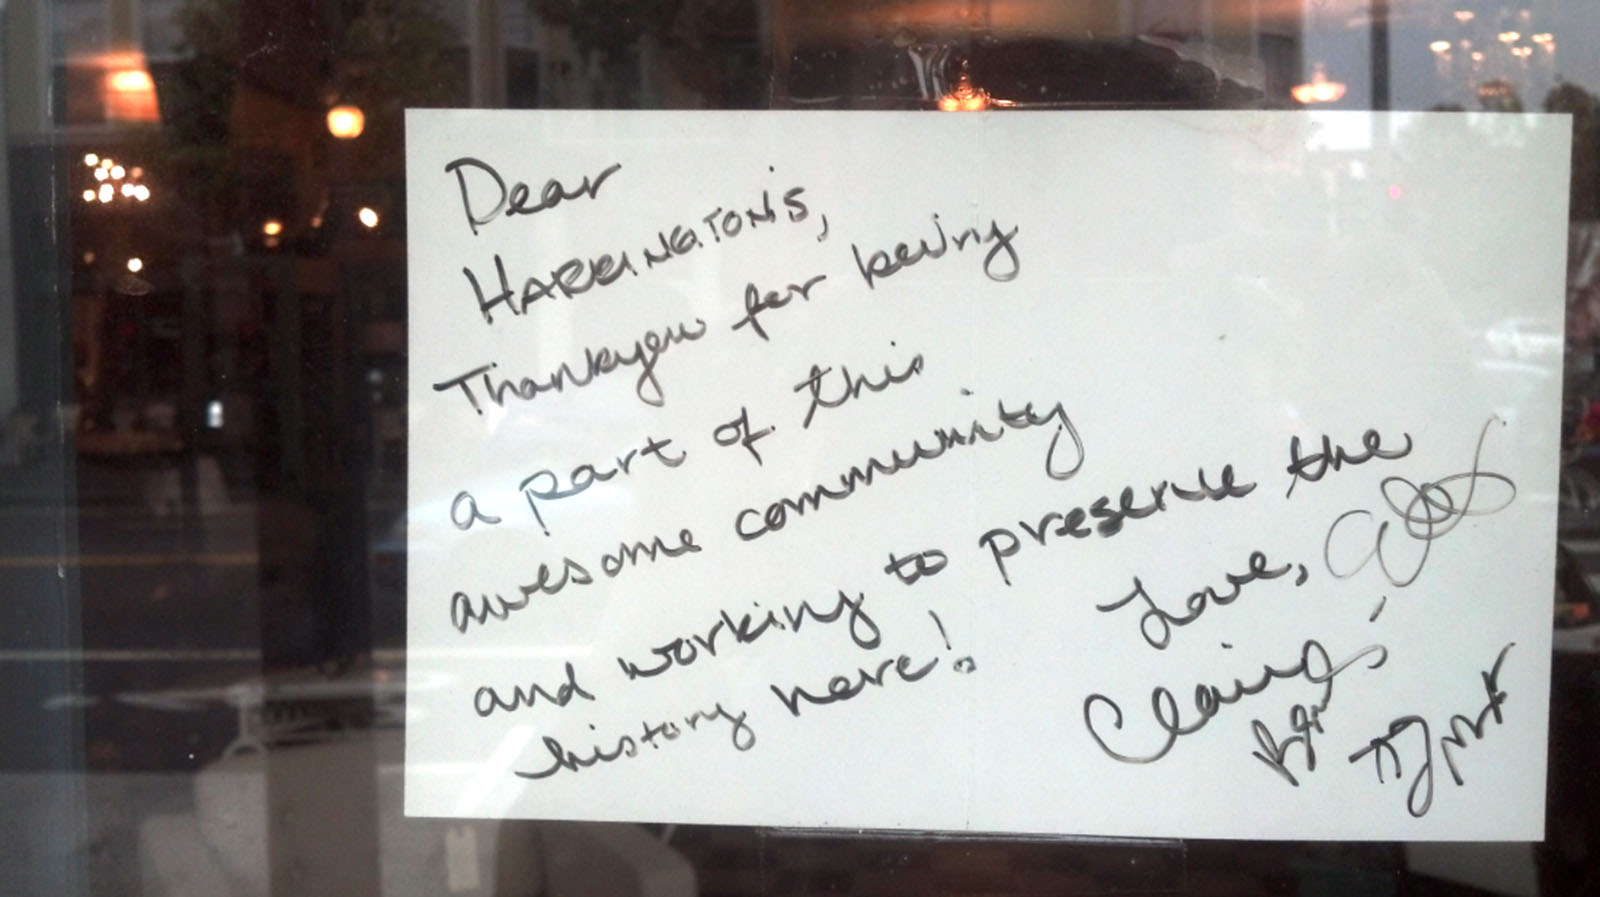 Dear
HARRINGTON'S,
Thankyou for being
a part of this
awesome community
and working to preserve the
history here!
Love,